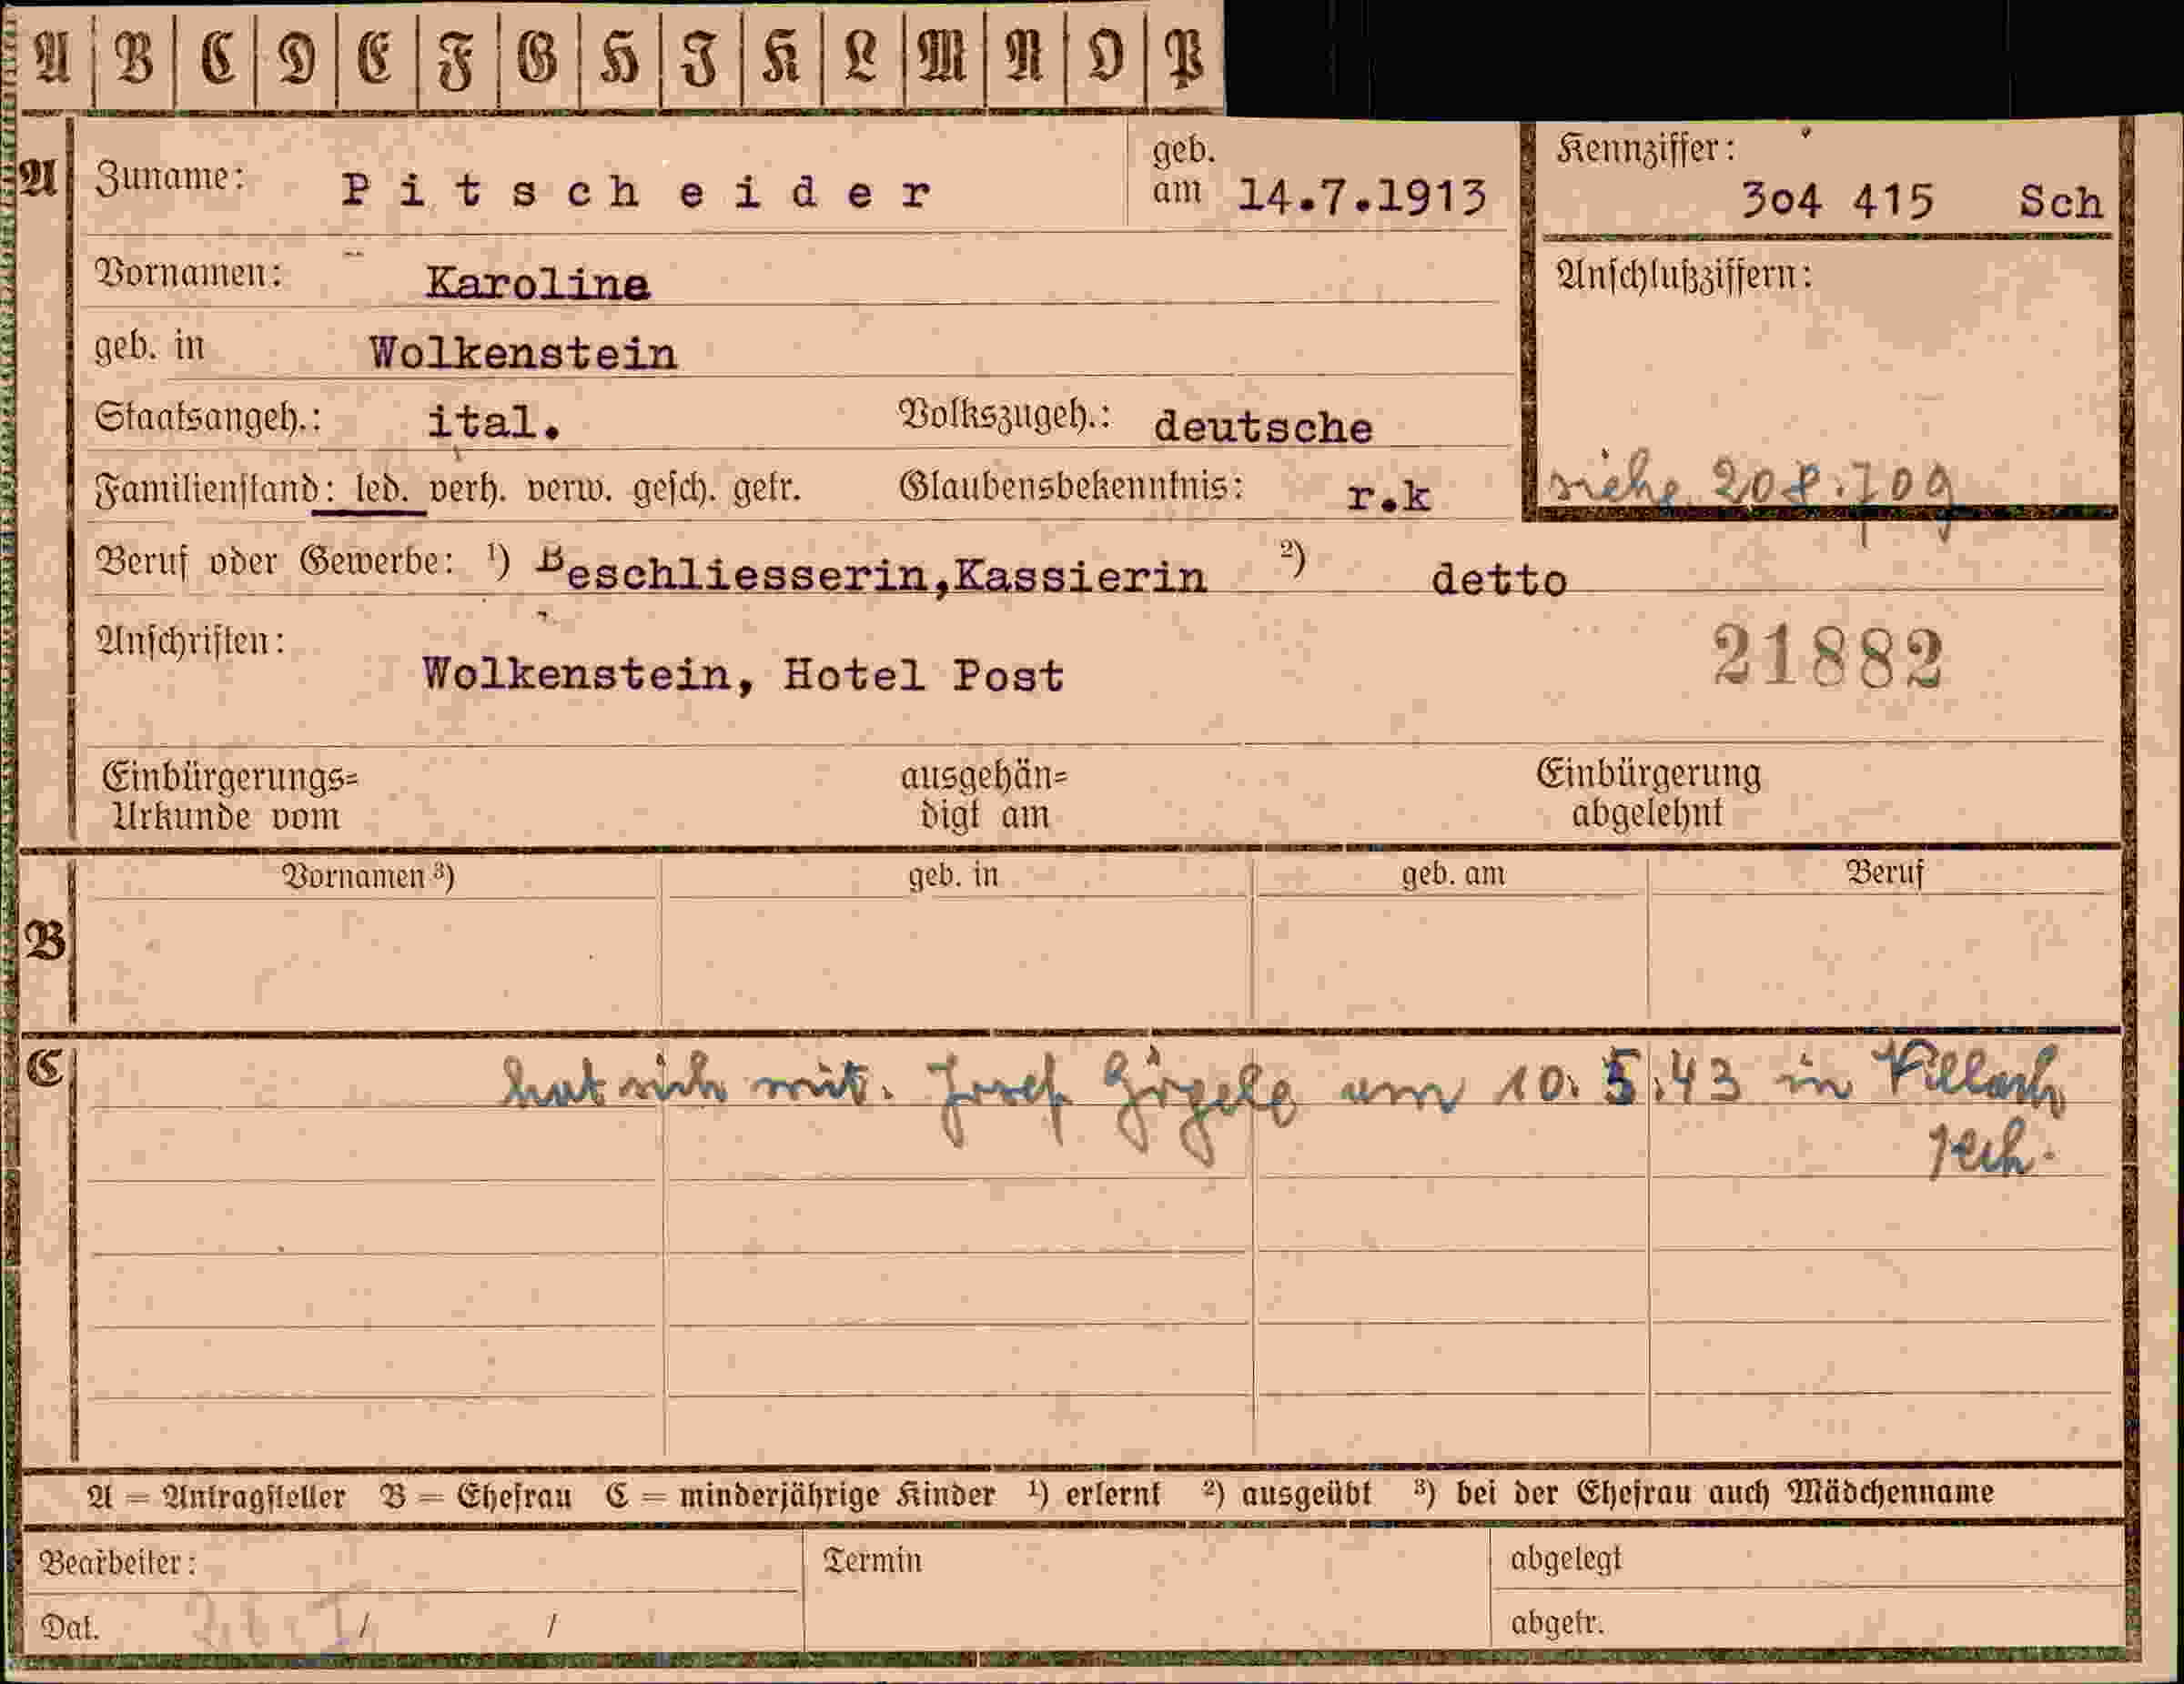 A B C D E F G H I K L M N O P
A Zuname: Pitscheider geb. am 14.7.1913 Kennziffer: 304 415 Sch
Vornamen: Karoline Anschlußziffern:
geb. in Wolkenstein
Staatsangeh.: ital. Volkszugeh.: deutsche
Familienstand: led. verh. verw. gesch. getr. Glaubensbekenntnis: r.k siehe 208.709
Beruf oder Gewerbe: ¹) Beschliesserin,Kassierin ²) detto
Anschriften: Wolkenstein, Hotel Post 21882
Einbürgerungs= Urkunde vom ausgehän= digt am Einbürgerung abgelehnt
Vornamen ³) geb. in geb. am Beruf
B
C hat sich mit. Josef am 10. 5.43 in Villach
A = Antragsteller B = Ehefrau C = minderjährige Kinder ¹) erlernt ²) ausgeübt ³) bei der Ehefrau auch Mädchenname
Bearbeiter: Termin abgelegt
Dat. / / abgetr.